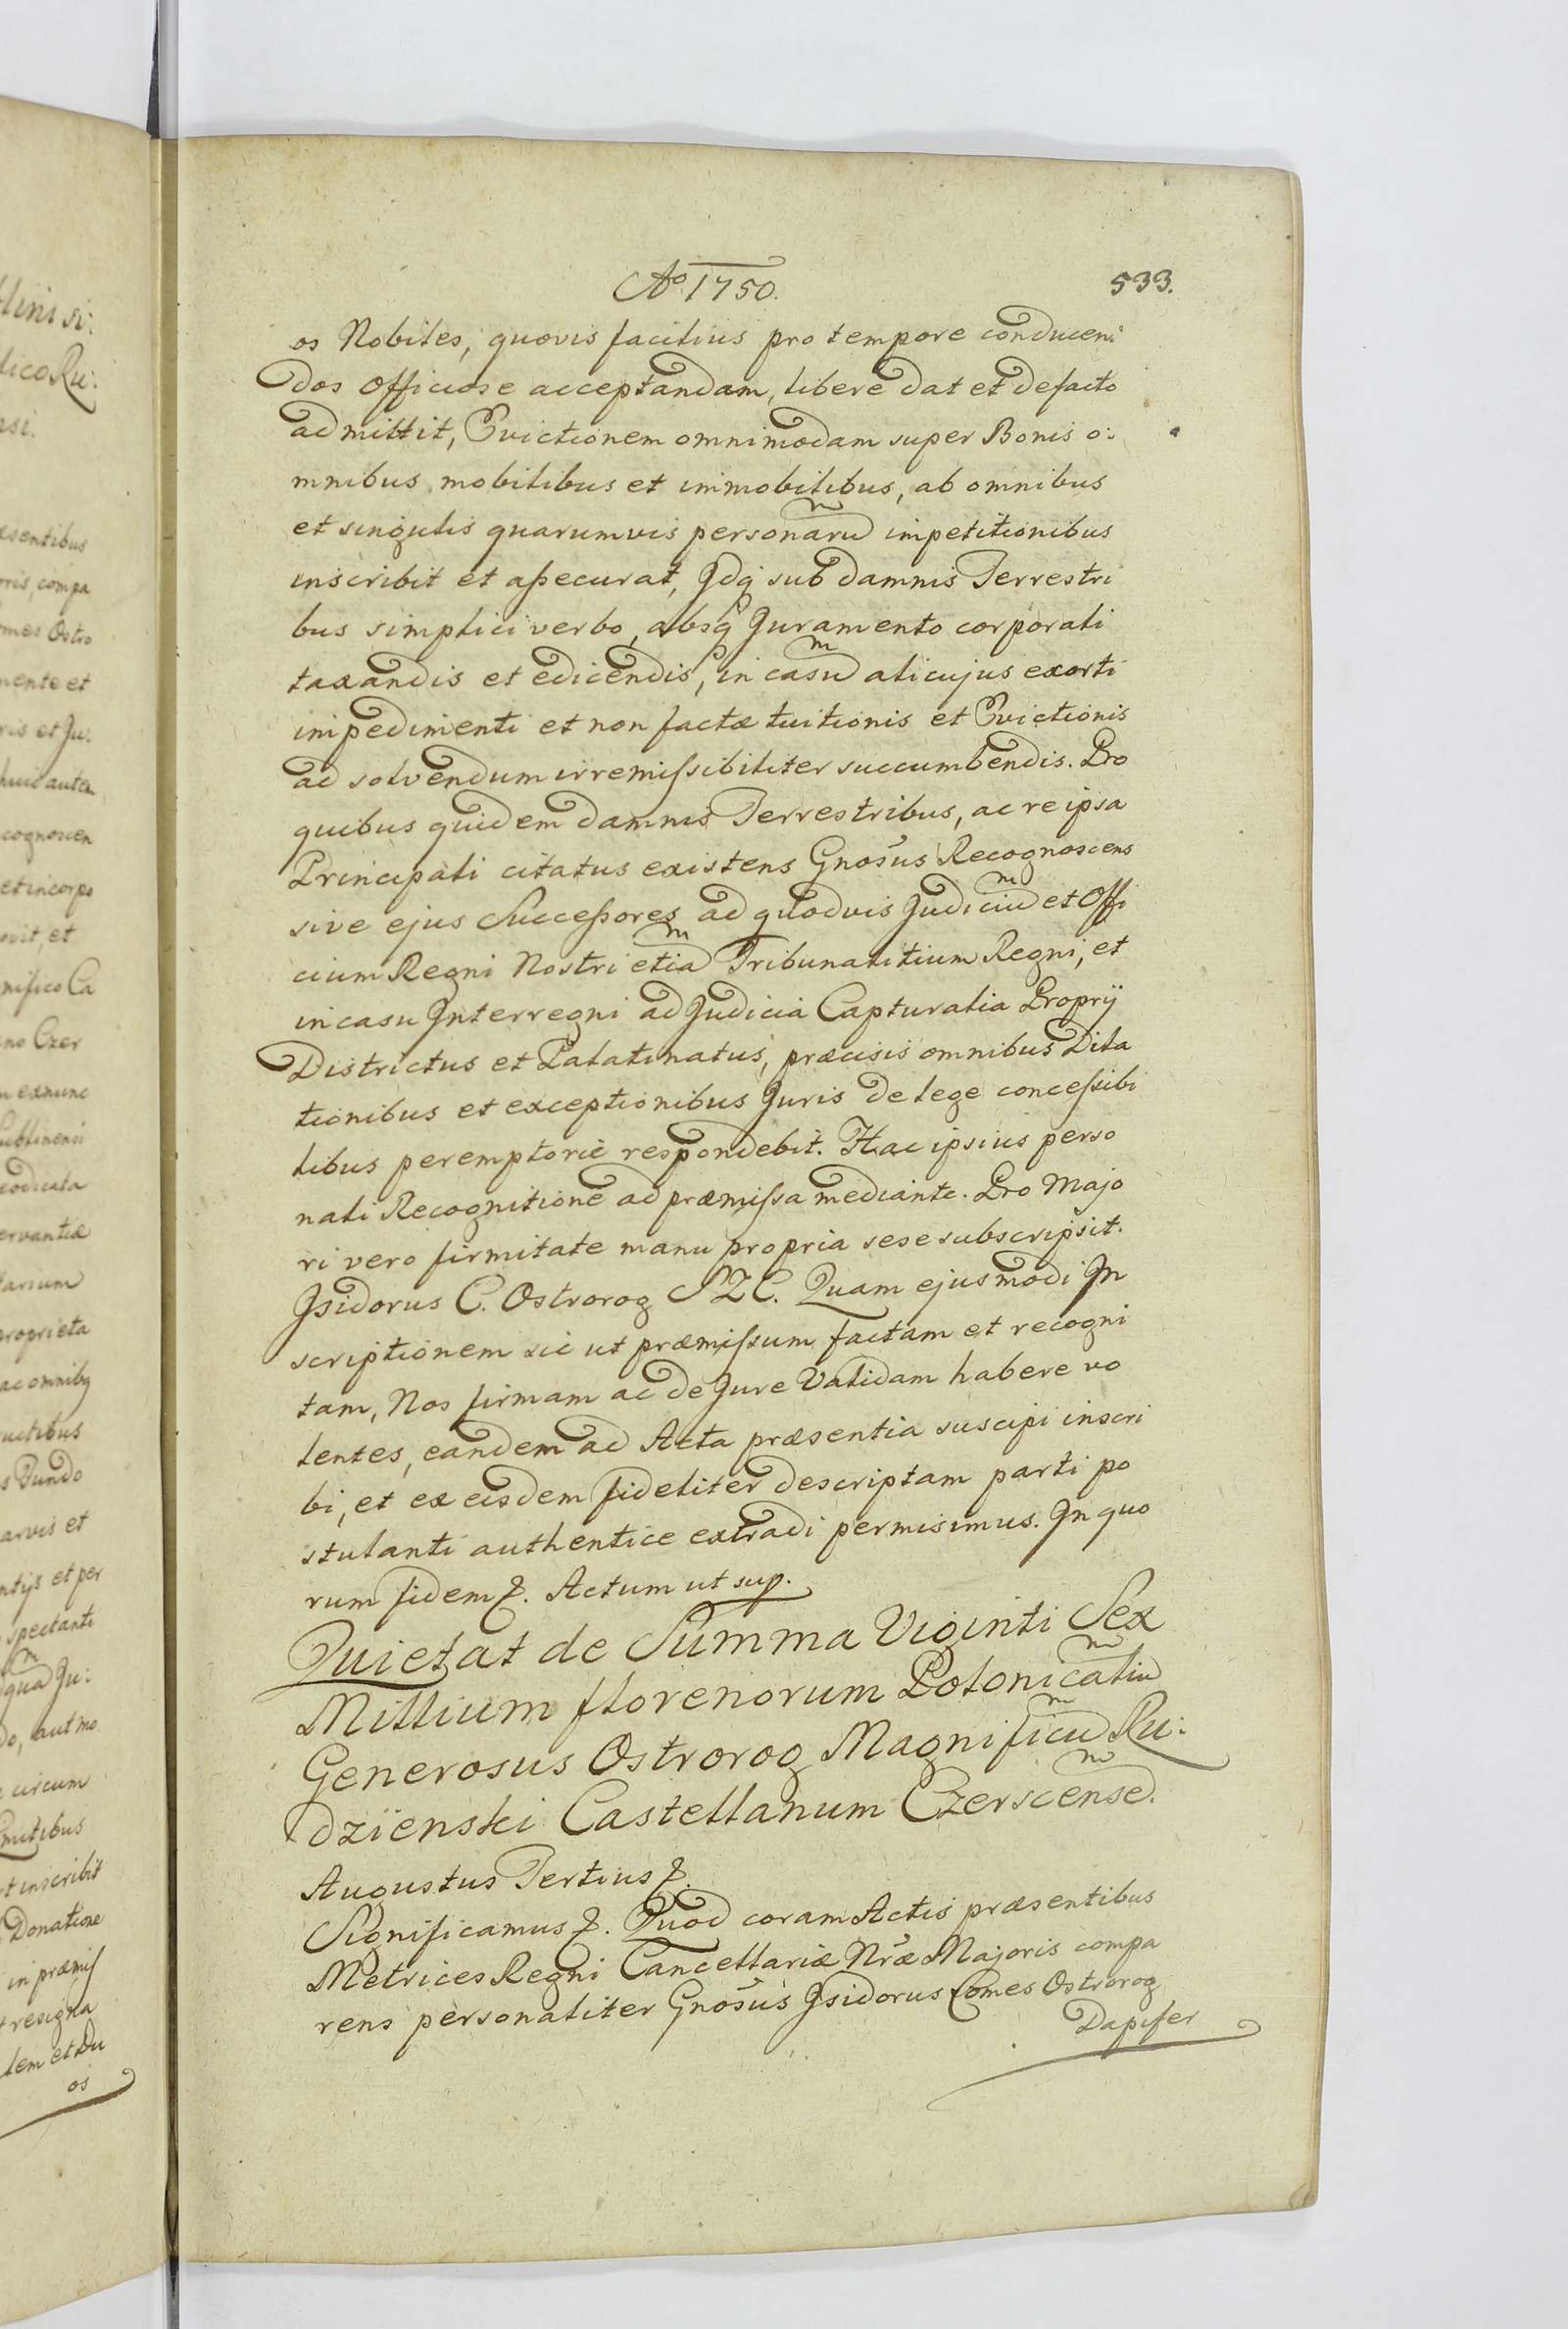 Aº 1750.
533.
os Nobiles, quovis facilius pro tempore conducen:
dos officiose acceptandam, libere dat et defacto
admittit, Evictionem omnimodam super Bonis o:
mnibus mobilibus et immobilibus, ab omnibus
et singulis quarumvis personarum impetitionibus
inscribit et assecurat, Idq sub damnis Terrestri
bus simplici verbo, absq Juramento corporali
taxandis et edicendis, in casum alicujus exorti
impedimenti et non factæ tuitionis et Evictionis
ad solvendum irremissibiliter succumbendis. Pro
quibus quidem damnis Terrestribus, ac re ipsa
Principali citatus existens Gnosus Recognoscens
sive ejus Successores ad quodvis Judicium et Offi
cium Regni Nostri etiam Tribunalitium Regni, et
in casu Interregni ad Judicia Capturalia Proprÿ
Districtus et Palatinatus, præcisis omnibus Dila
tionibus et exceptionibus Juris de lege concessibi
libus peremptorie respondebit. Hac ipsius perso
nali Recognitione ad præmissa mediante. Pro Majo
ri vero firmitate manu propria sese subscripsit.
Isidorus C. Ostrorog SZC. Quam ejusmodi In
scriptionem sic ut præmissum factam et recogni
tam, Nos firmam ac de Jure Validam habere vo
lentes, eandem ad Acta præsentia suscipi inscri
bi, et ex eisdem fideliter descriptam parti po
stulanti authentice extradi permisimus. In quo
rum fidem &. Actum ut sup.
Quietat de Summa Viginti Sex
Millium florenorum Polonicalium
Generosus Ostrorog Magnificum Ru:
dzienski Castellanum Czerscensem.
Augustus Tertius &.
Significamus &. Quod coram Actis præsentibus
Metrices Regni Cancellariæ Nræ Majoris compa
rens personaliter Gnosus Isidorus Comes Ostrorog
Dapifer